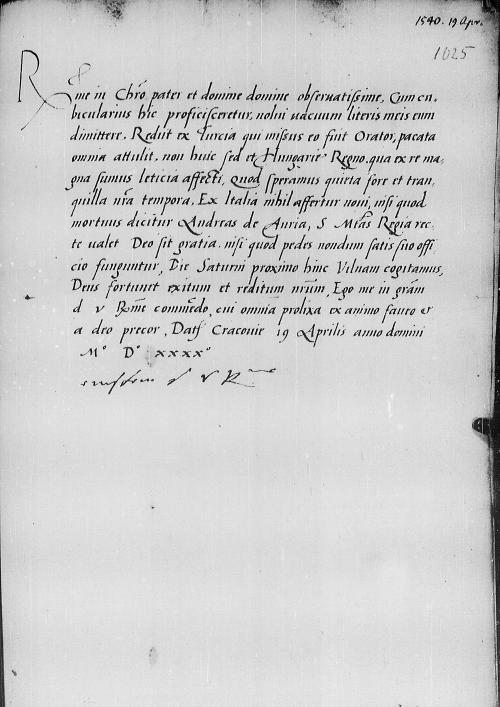 1540. 19 Apr.
1025
Rme in Chro pater et domine domine obseruatissime, Cum cu,
bicularius hic proficisceretur, nolui vacuum literis meis eum
dimittere. Redut ex Turcia qui missus eo fuit Orator, pacata
omnia attulit, non huic sed et Hungarie Regno. qua ex re ma,
gna sumus leticia affecti, Quod speramus quieta fore et tran,
quilla nra tempora, Ex Italia nihil affertur noui, nisi quod
mortuus dicitur Andreas de Auria, S Mtas Regia rec,
te valet Deo sit gratia. nisi quod pedes nondum satis suo offi
cio funguntur, Die Saturni proximo hinc Vilnam cogitamus,
Deus fortunet exitum et reditum nrum, Ego me in gram
d v Rme commedo, cui omnia prolixa ex animo faueo et
a deo precor, Datt Cracouie 19 Aprilis anno domini
Mo Do xxxxo
d v Rme